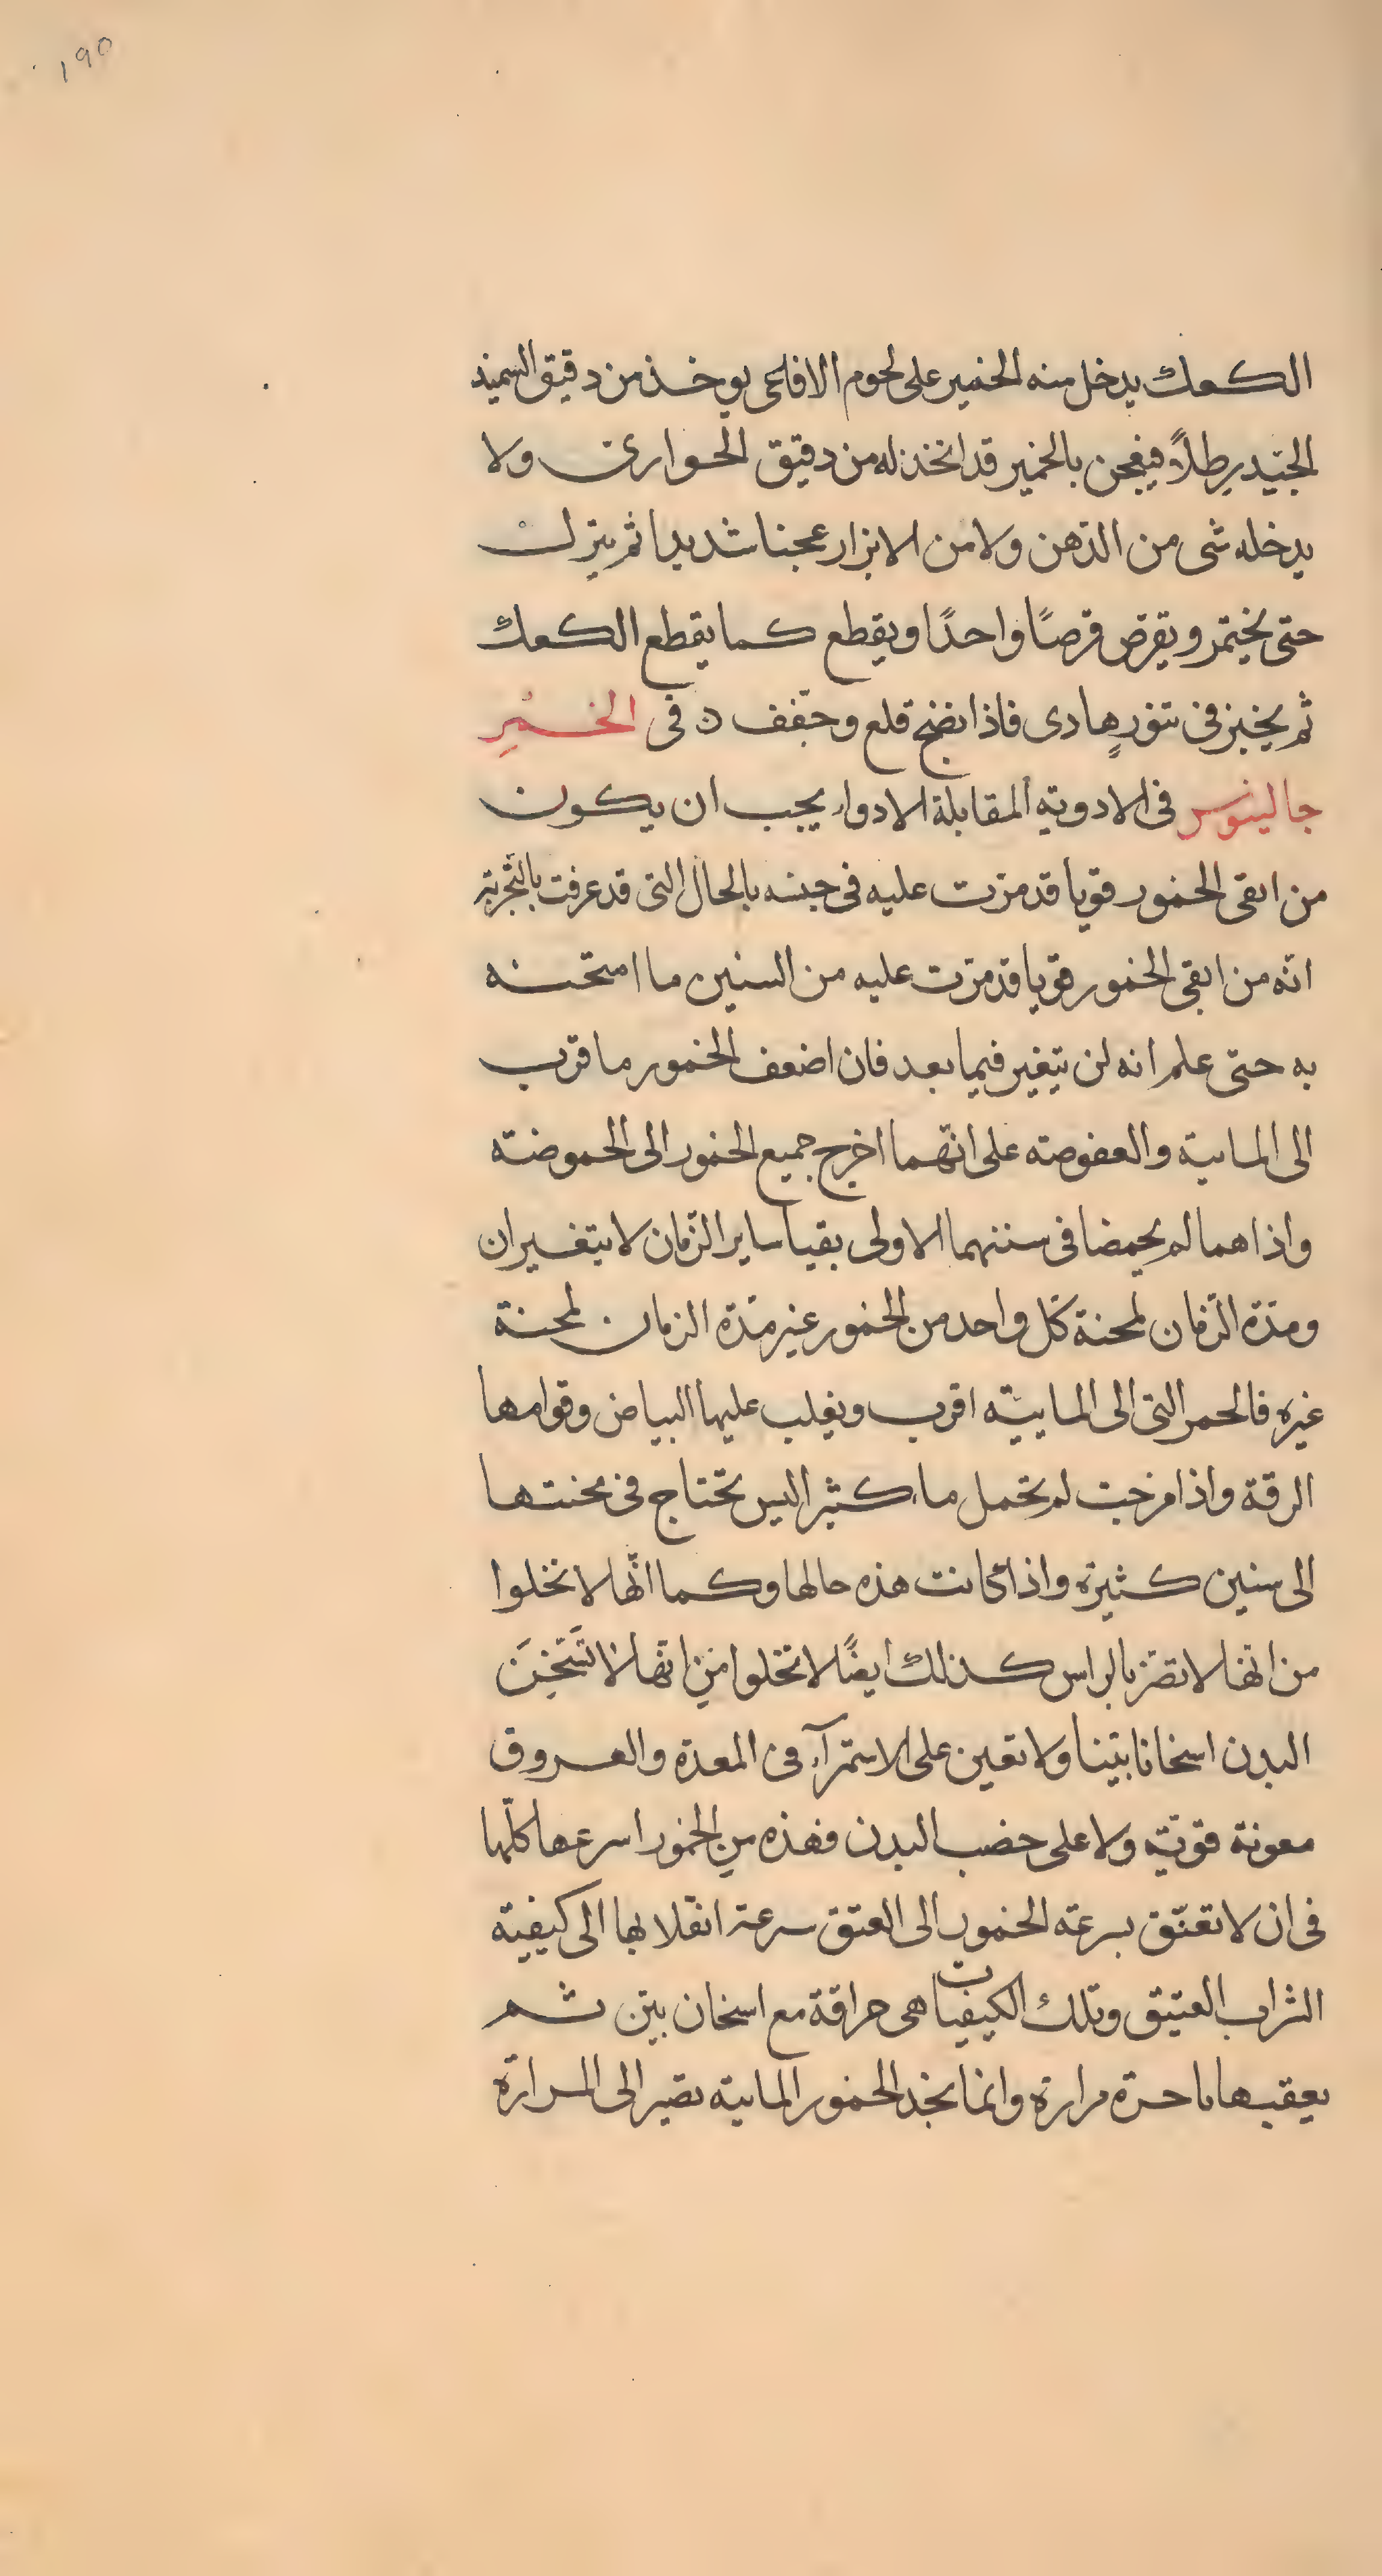 ١٩٥
الكعك يدخل منه الخمير على لحوم الافاعى يوخذ من دقيق السميذ
الجيّد رطلاً فيعجن بالخمير قد اتخذ له من دقيق الحوارى ولا
يدخله شى من الدّهن ولا من الابزار عجنا شديدا ثم يترك
حتى يختمر ويقرص قرصًا واحدًا ويقطع كما يقطع الكعك
ثم يخبز فى تنّورٍ هادى فاذا نضج قلع وجفف ۵ فى الخمر
جالينوس فى الادوية المقابلة الادواء يجب ان يكون
من ابقى الخمور قويا قد مرّت عليه فى جنسه بالحال التى قد عرفت بالتّجربة
انّه من ابقى الخمور قويا قد مرّت عليه من السنين ما امتحنه
به حتى علم انه لن يتغير فيما بعد فان اضعف الخمور ما قرب
الى المايية والعفوصة على انّهما اخرج جميع الخمور الى الحموضة
واذا هما لم يحمضا فى سنتهما الاولى بقيا ساير الزّمان لا يتغيران
ومدّة الزّمان لمحنة كل واحد من الخمور غير مدّة الزمان لمحنة
غيره فالخمر التى الى المايية اقرب ويغلب عليها البياض وقوامها
الرقة واذا مزجت لم تحمل ماء كثيرا ليس تحتاج فى محنتها
الى سنين كثيرة واذا كانت هذه حالها وكما انّها لا تخلوا
من انها لا تضرّ بالراس كذلك ايضًا لا تخلوا من انّها لا تسَخِنَ
البدن اسخانا بيّنا ولا تعين على الاستمرآء فى المعدة والعروق
معونة قويّة ولا على خصب البدن فهذه من الخمور اسرعها كلّها
فى ان لا تعتّق بسرعة الخمور الى العتق سرعة انقلابها الى كيفية
الشراب العتيق وتلك الكيفيات هى حرافة مع اسخان بيّن ثم
يعقبها باخرة مرارة وانما نجد الخمور المايية تصير الى المرارة